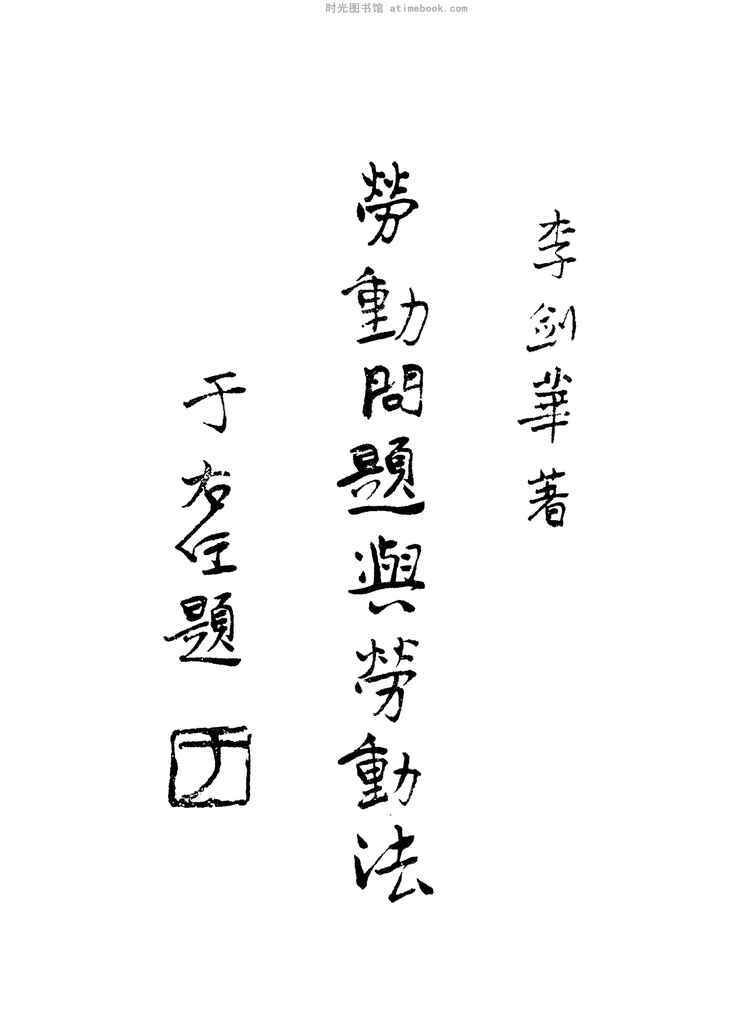 时光图书馆 atimebook.com
李剑華著
勞動問題與勞動法
于右任題
于